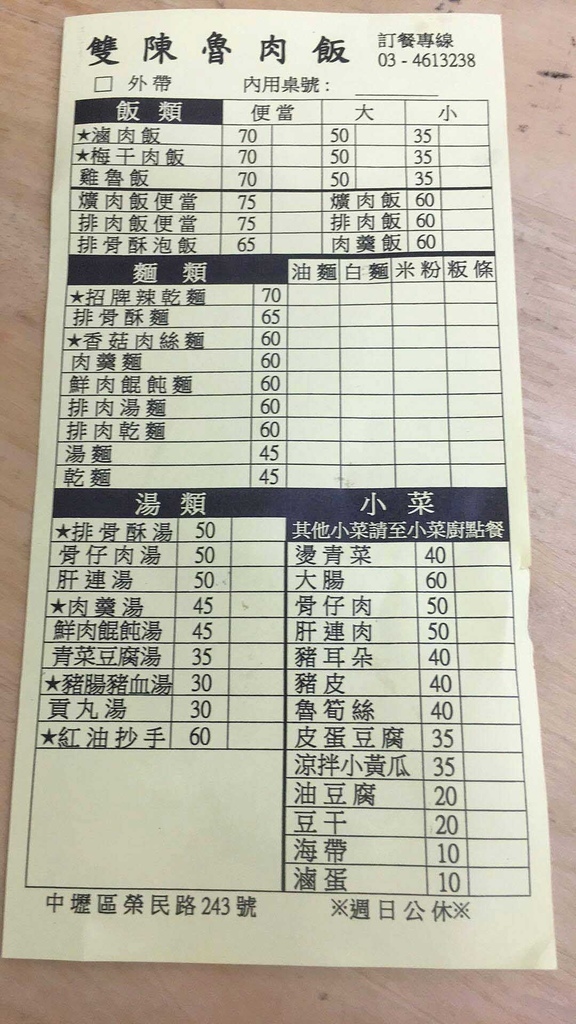 雙陳魯肉飯 訂餐專線
03-4613238
□ 外帶 內用桌號：
飯類 便當 大 小
★滷肉飯 70 50 35
★梅干肉飯 70 50 35
雞魯飯 70 50 35
爌肉飯便當 75 爌肉飯 60
排肉飯便當 75 排肉飯 60
排骨酥泡飯 65 肉羹飯 60
麵類 油麵 白麵 米粉 粄條
★招牌辣乾麵 70
排骨酥麵 65
★香菇肉絲麵 60
肉羹麵 60
鮮肉餛飩麵 60
排肉湯麵 60
排肉乾麵 60
湯麵 45
乾麵 45
湯類
★排骨酥湯 50
骨仔肉湯 50
肝連湯 50
★肉羹湯 45
鮮肉餛飩湯 45
青菜豆腐湯 35
★豬腸豬血湯 30
貢丸湯 30
★紅油抄手 60
小菜
其他小菜請至小菜廚點餐
燙青菜 40
大腸 60
骨仔肉 50
肝連肉 50
豬耳朵 40
豬皮 40
魯筍絲 40
皮蛋豆腐 35
涼拌小黃瓜 35
油豆腐 20
豆干 20
海帶 10
滷蛋 10
中壢區榮民路243號 ※週日公休※